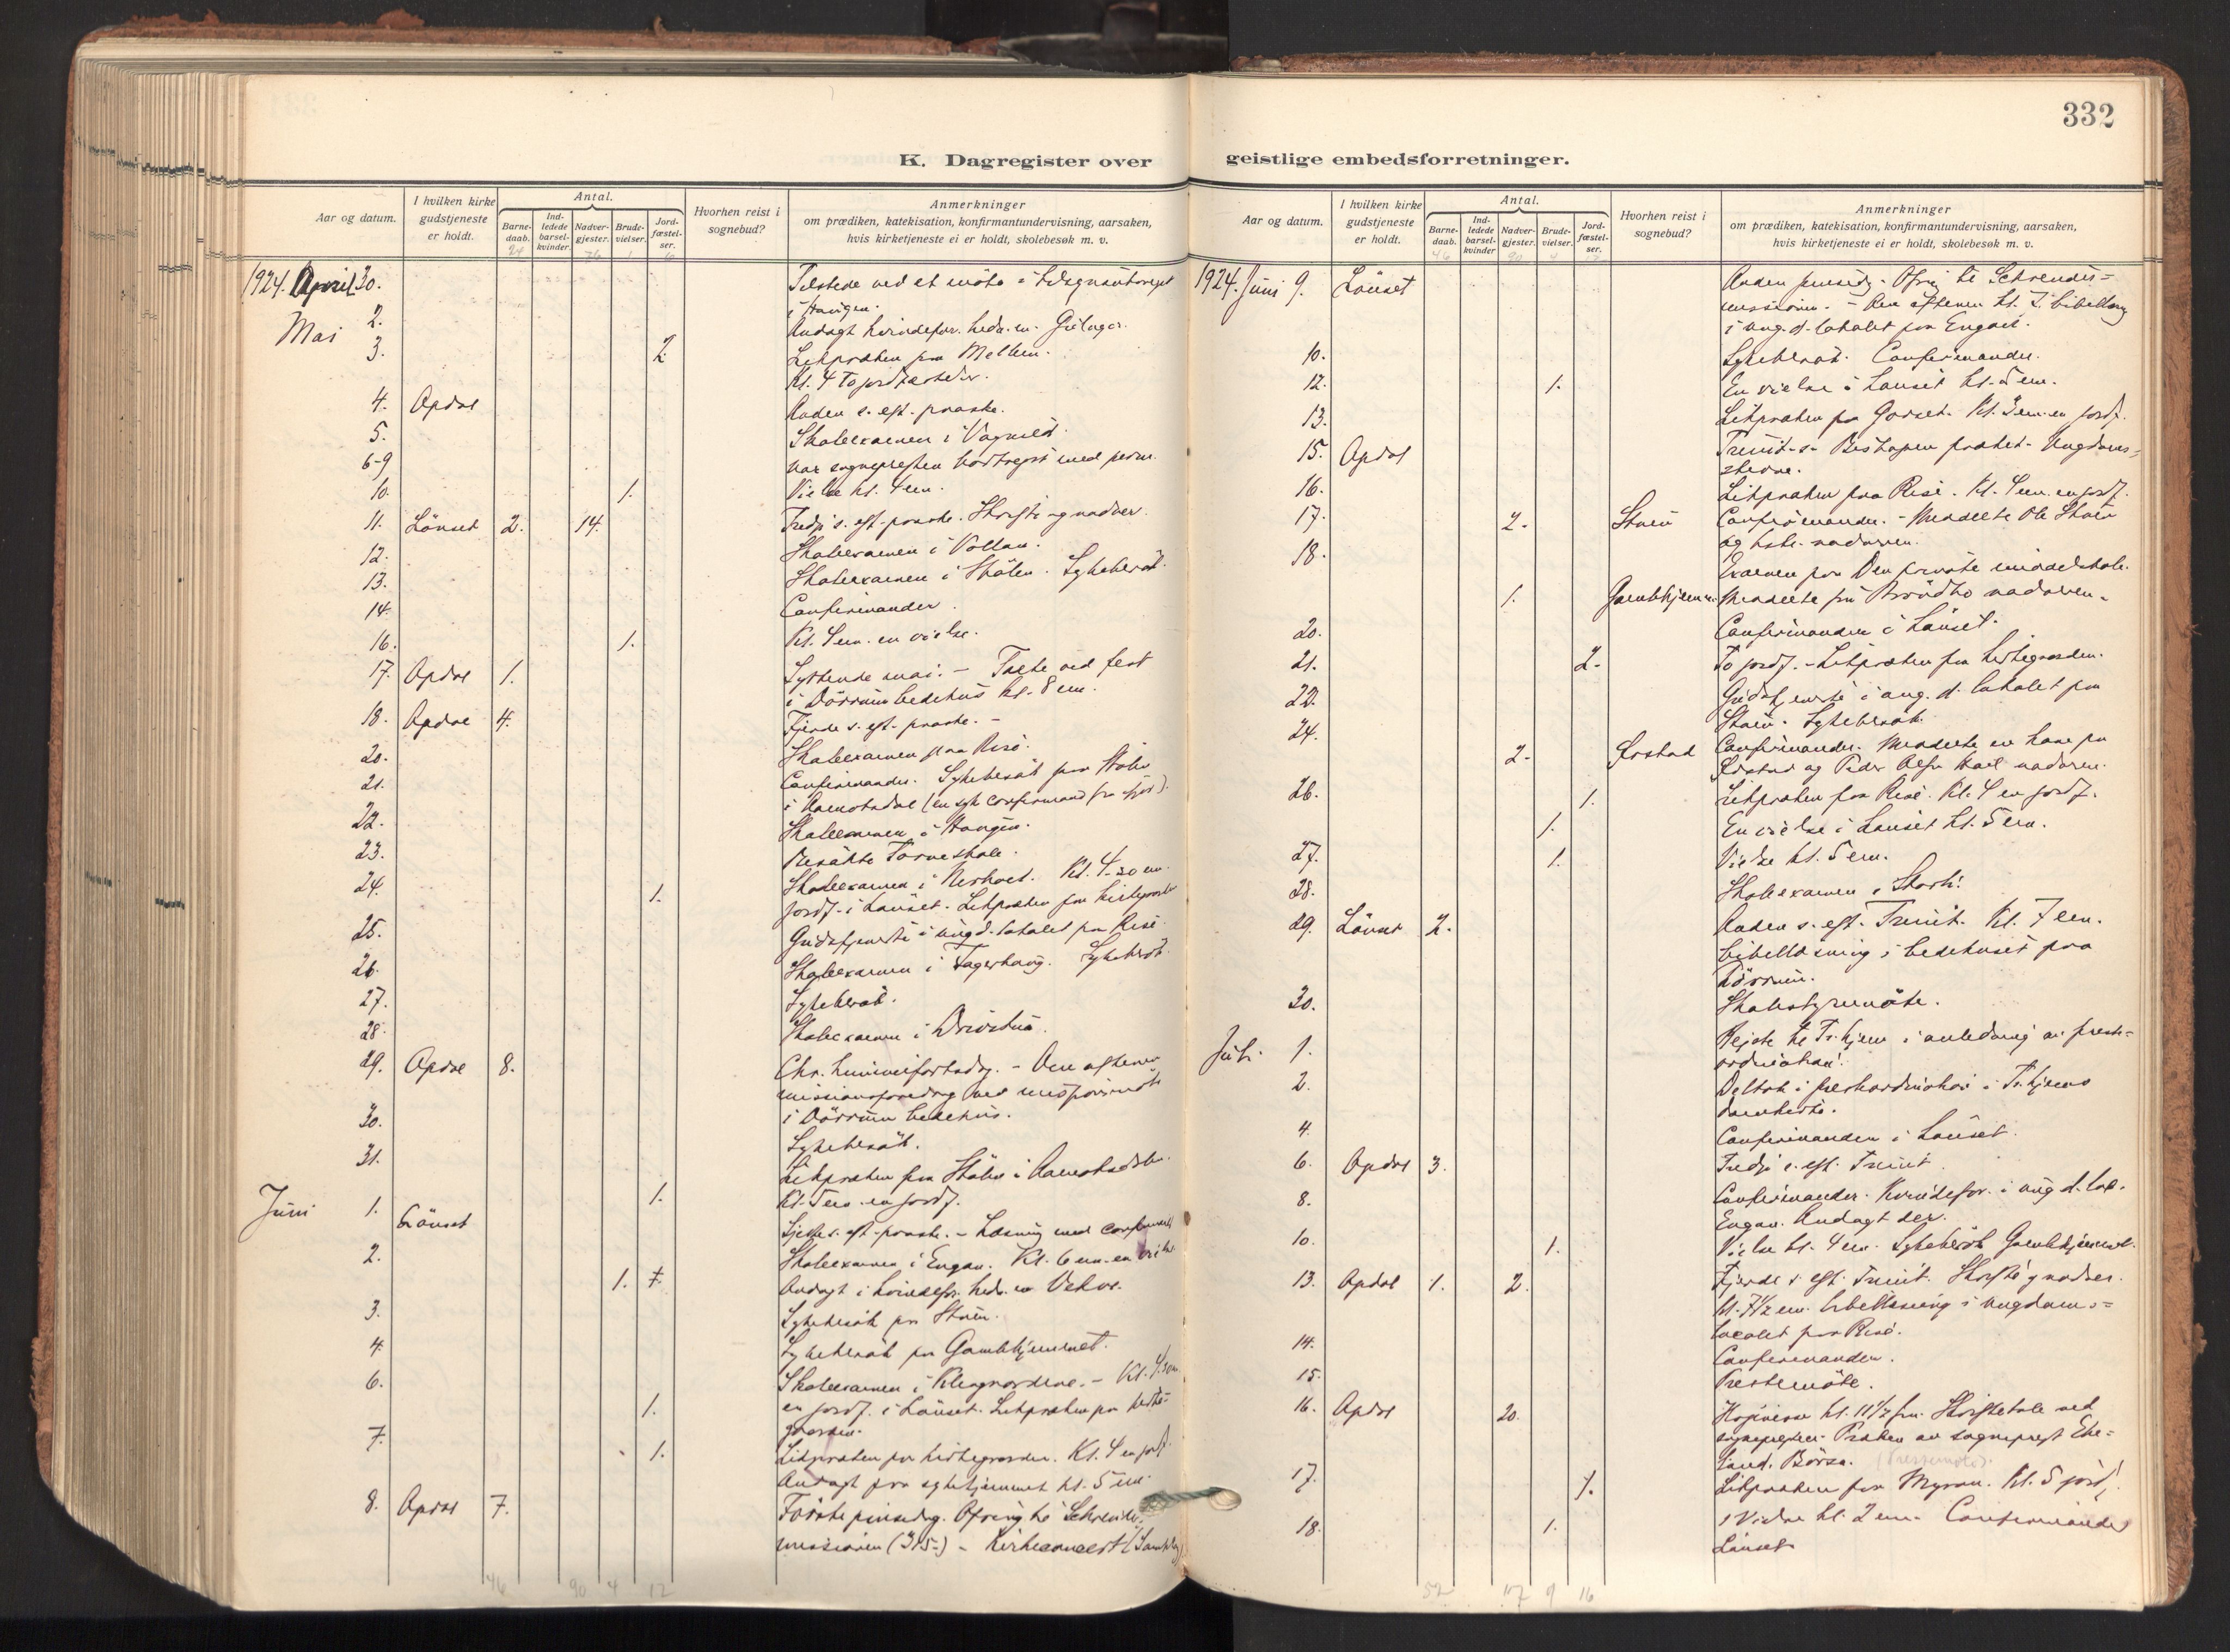 332
K. Dagregister over geistlige embedsforretninger.
Aar og datum.
I hvilken kirke gudstjeneste er holdt.
Antal.
Barne-daab.
Ind-ledede barsel-kvinder.
Nadver-gjester.
Brude-vielser.
Jord-fæstel-ser.
Hvorhen reist i sognebud?
Anmerkninger
om prædiken, katekisation, konfirmantundervisning, aarsaken,
hvis kirketjeneste ei er holdt, skolebesøk m. v.
24 76 1 6
1924. April 30. Tilstede ved et møte i
i Haugen.
Mai 2. Andagt kvindefor.
3. 2. Likpræken paa Mellem.
Kl. 4 to jordfæstelser.
4. Opdal Anden s. eft. paaske.
5. Skoleexamen i Vognild.
6-9 var sognepresten bortreist med perm.
10. 1. Vielse kl. 4 em.
11. Lönset 2. 14. Tredje s. eft. paaske. Skrifte og nadver.
12. Skoleexamen i Vollan.
13. Skoleexamen i Stölen. Sykebesök.
14. Confirmander.
16. 1. Kl. 4 em. en vielse.
17. Opdal 1. Syttende mai. - Talte ved fest
i Dörrum bedehus kl. 8 em.
18. Opdal 4. Fjerde s. eft. paaske. -
20. Skoleexamen paa Rise.
21. Confirmander. Sykebesök paa Stölen
i Aamotsdal (en syk confirmand fra ifjor).
22. Skoleexamen i Haugen.
23. Besökte Torveskole.
24. 1. Skoleexamen i Nerhoel. Kl. 4.30 em.
jordf. i Lönset. Likpræken paa kirkegaarden
25. Gudstjeneste i ungd. lokalet paa Rise.
26. Skoleexamen i Fagerhaug. Sykebesök.
27. Sykebesök.
28. Skoleexamen i Drivstua.
29. Opdal 8. Chr. himmelfartsdag. - Om aftenen
missionsforedrag ved misjonsmöte
i Dörrum bedehus.
30. Sykebesök.
31. Likpræken paa Stölen i Aamotsdalen.
1. Kl. 5 em. en jordf.
Juni 1. Lönset Sjette s. eft. paaske. - Læsning med confirmander
2. Skoleexamen i Engan. Kl. 6 em. en vielse.
1. Andagt i kvindefor.
3. Sykebesök paa Stuen.
4. Sykebesök paa Gamlehjemmet.
6. Skoleexamen i Klevgardene. - Kl. 4.30 em
1. en jordf. i Lönset. Likpræken paa kirke-
gaarden.
7. 1. Likpræken paa kirkegaarden. Kl. 4 en jordf.
Andagt paa sykehjemmet kl. 5 em.
8. Opdal 7. Förste pinsedag. Ofring til Schreuder-
missionen (315.-) - Kirkeconcert
46 90 4 12
Aar og datum.
I hvilken kirke gudstjeneste er holdt.
Antal.
Barne-daab.
Ind-ledede barsel-kvinder
Nadver-gjester.
Brude-vielser.
Jord-fæstel-ser.
Hvorhen reist i sognebud?
Anmerkninger
om prædiken, katekisation, konfirmantundervisning, aarsaken,
hvis kirketjeneste ei er holdt, skolebesøk m. v.
46 90 4 12
1924. Juni 9. Lönset Anden pinsedag. Ofring til Schreuder-
missionen. - Om aftenen kl. 7. bibellæsning
i ung.d. lokalet paa Engan.
10. Sykebesök. Confirmander.
12. 1. En vielse i Lönset kl. 5 em.
13. Likpræken paa Gorset. Kl. 3 em. en jordf.
15. Opdal Trinit. s. Biskopen præket. Ungdoms-
stevne.
16. Likpræken paa Rise. Kl. 4 em. en jordf.
17. 2. Stuen Confirmander. - Meddelte Ole Stuen
og hstr. nadveren.
18. Examen paa Den private middelskole.
1. Gamlehjemm. Meddelte nadveren.
20. Confirmander i Lönset.
21. 2. To jordf. - Likpræken paa kirkegaarden.
22. Gudstjeneste i ung. d. lokalet paa
Stuen. Sykebesök.
24. 2. Ørstad Confirmander. Meddelte en kone paa
Ørstad og nadveren.
26. 1. Likpræken paa Rise. Kl. 4 en jordf.
1. En vielse i Lönset kl. 5 em.
27. 1. Vielse kl. 5 em.
28. Skoleexamen i
29. Lönset 2. Anden s. eft. Trinit. Kl. 7 em.
bibellæsning i bedehuset paa
Dörrum.
30. Skolestyremöte.
Juli 1. Reiste til Tr.hjem i anledning av preste-
ordination.
2. Deltok i presteordination i Tr.hjems
domkirke.
4. Confirmander i Lönset.
6. Opdal 3. Tredje s. eft. Trinit.
8. Confirmander. Kvindefor. i ung.d. lok.
Engan. Andagt der.
10. 1. Vielse kl. 4 em. Sykebesök Gamlehjemmet.
13. Opdal 1. 2. Fjerde s. eft. Trinit. Skrifte og nadver.
kl. 7 1/2 em. bibellæsning i ungdoms-
lokalet paa Rise.
14. Confirmander.
15. Prestemöte.
16. Opdal 20. Höimesse kl. 11 1/2 fm. Skriftetale ved
sognepresten. Præken av sogneprest
Börsa. (Prestemöte).
17. 1. Likpræken paa Myran. Kl. 5 jordf.
18. 1. 1 Vielse kl. 2 em. Confirmander
Lönset
52 107 9 16